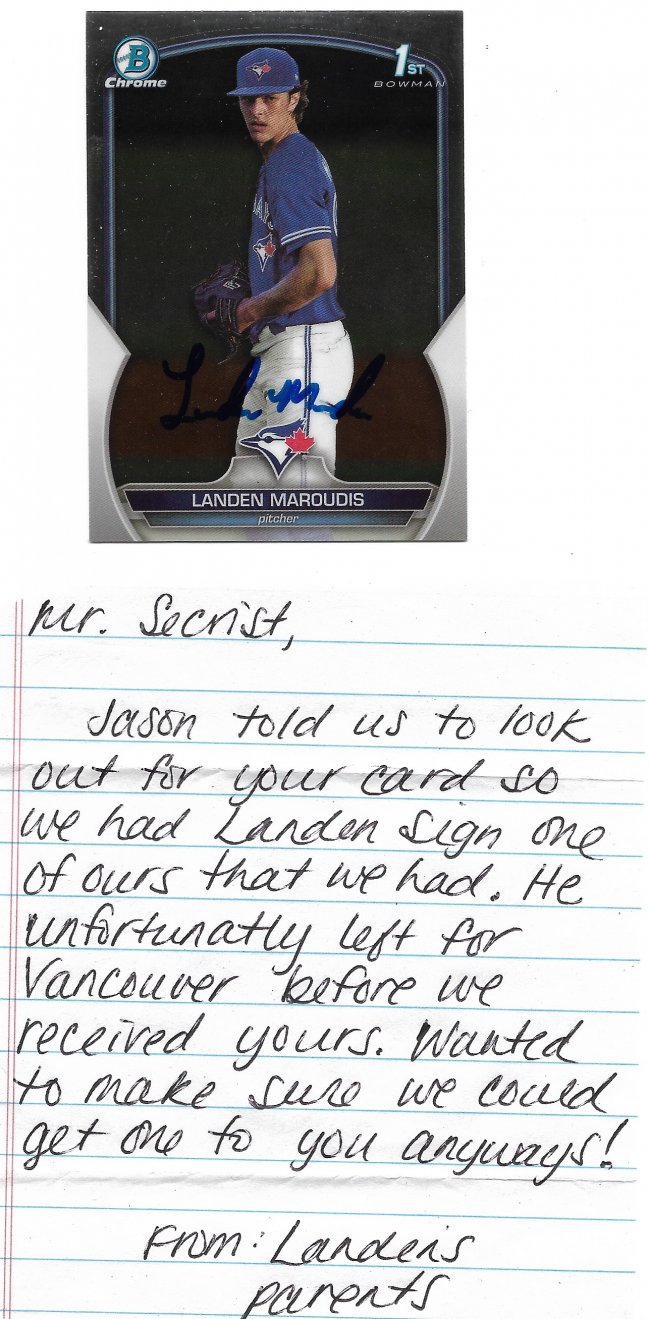 B
Chrome
1ST
BOWMAN
Landen Maroudis
LANDEN MAROUDIS
pitcher
Mr. Secrist,
Jason told us to look
out for your card so
we had Landen sign one
of ours that we had. He
unfortunatly left for
Vancouver before we
received yours. Wanted
to make sure we could
get one to you anyways!
From: Landen's
parents